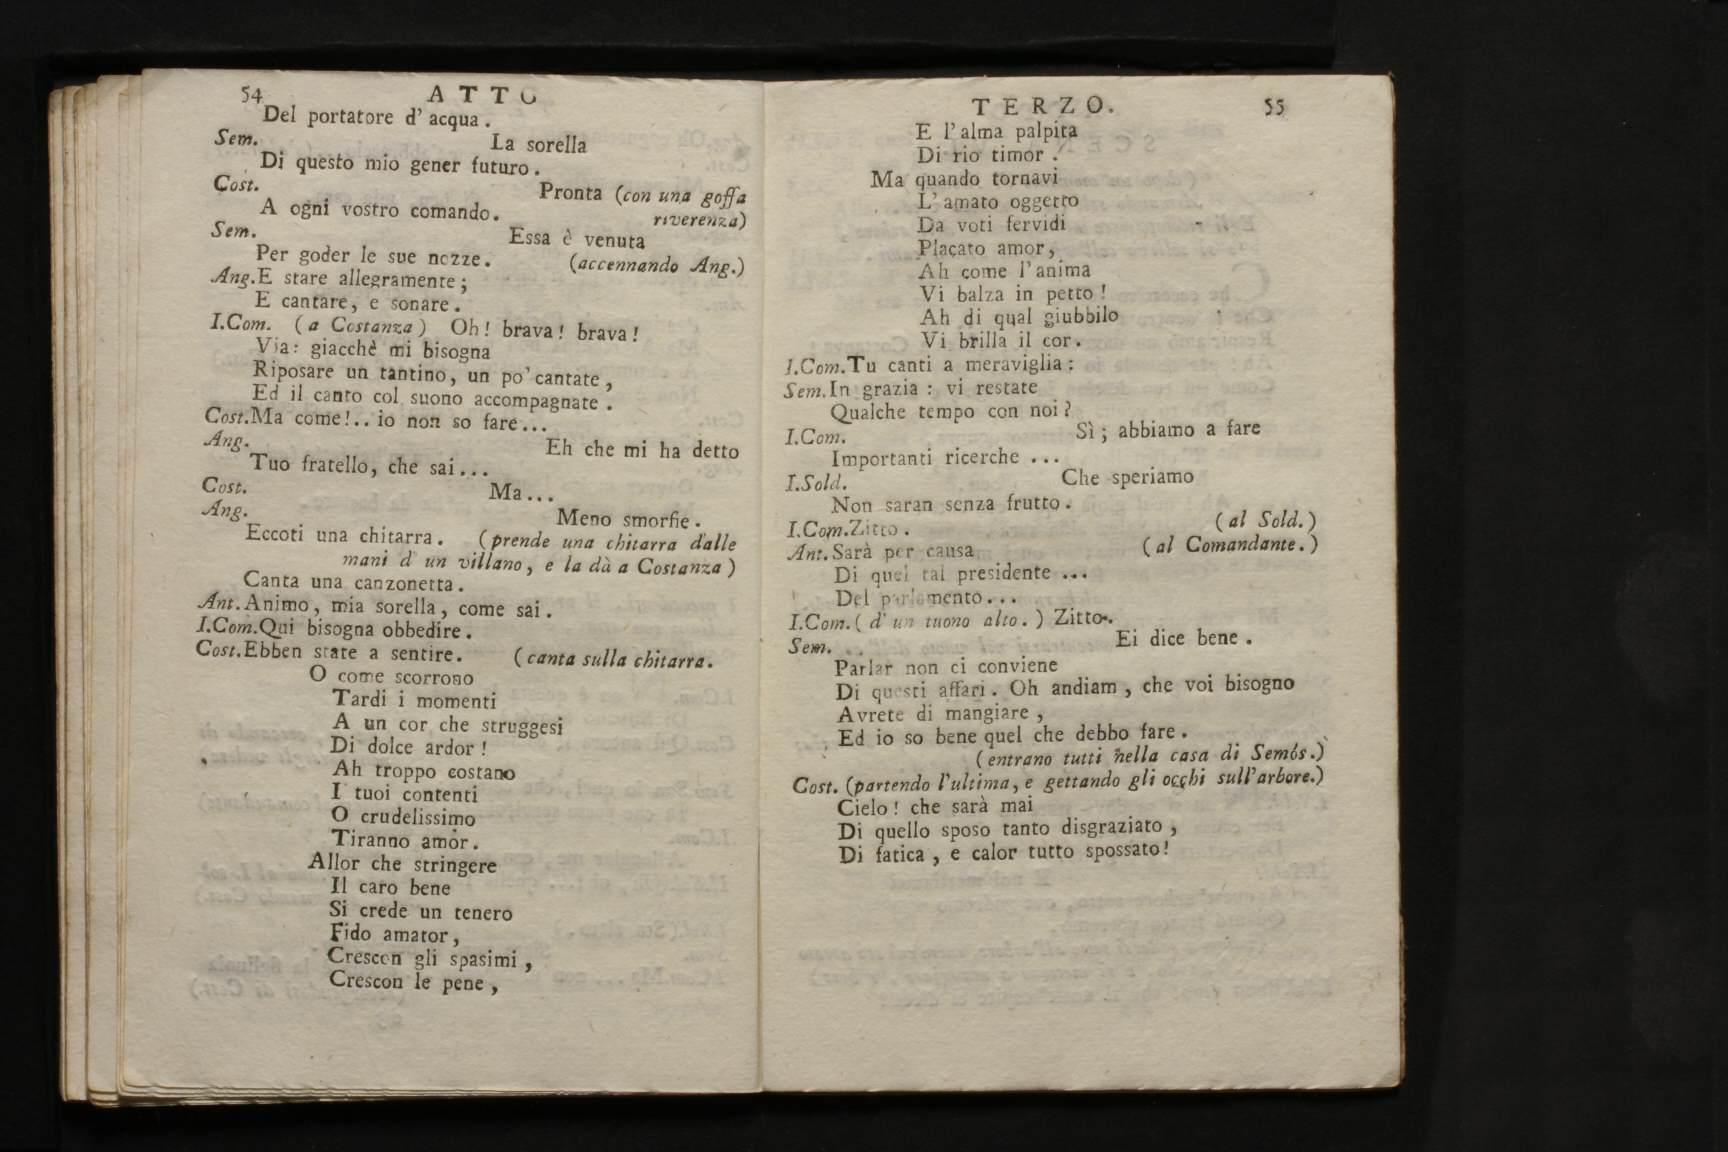 54 ATTO
Del portatore d' acqua.
Sem. La sorella
Di questo mio gener futuro.
Cost. Pronta (con una goffa
A ogni vostro comando. riverenza)
Sem. Essa è venuta
Per goder le sue nozze. (accennando Ang.)
Ang. E stare allegramente;
E cantare, e sonare.
I.Com. (a Costanza) Oh! brava! brava!
Via: giacchè mi bisogna
Riposare un tantino, un po' cantate,
Ed il canto col suono accompagnate.
Cost. Ma come!.. io non so fare...
Ang. Eh che mi ha detto
Tuo fratello, che sai...
Cost. Ma...
Ang. Meno smorfie.
Eccoti una chitarra. (prende una chitarra dalle
mani d' un villano, e la dà a Costanza)
Canta una canzonetta.
Ant. Animo, mia sorella, come sai.
I.Com. Qui bisogna obbedire.
Cost. Ebben state a sentire. (canta sulla chitarra.
O come scorrono
Tardi i momenti
A un cor che struggesi
Di dolce ardor!
Ah troppo costano
I tuoi contenti
O crudelissimo
Tiranno amor.
Allor che stringere
Il caro bene
Si crede un tenero
Fido amator,
Crescon gli spasimi,
Crescon le pene,
TERZO. 55
E l'alma palpita
Di rio timor.
Ma quando tornavi
L'amato oggetto
Da voti fervidi
Placato amor,
Ah come l'anima
Vi balza in petto!
Ah di qual giubbilo
Vi brilla il cor.
I.Com. Tu canti a meraviglia:
Sem. In grazia: vi restate
Qualche tempo con noi?
I.Com. Sì; abbiamo a fare
Importanti ricerche ...
I.Sold. Che speriamo
Non saran senza frutto.
I.Com. Zitto. (al Sold.)
Ant. Sarà per causa (al Comandante.)
Di quel tal presidente ...
Del parlamento...
I.Com. (d' un tuono alto.) Zitto.
Sem. Ei dice bene.
Parlar non ci conviene
Di questi affari. Oh andiam, che voi bisogno
Avrete di mangiare,
Ed io so bene quel che debbo fare.
(entrano tutti nella casa di Semós.)
Cost. (partendo l'ultima, e gettando gli occhi sull'arbore.)
Cielo! che sarà mai
Di quello sposo tanto disgraziato,
Di fatica, e calor tutto spossato!